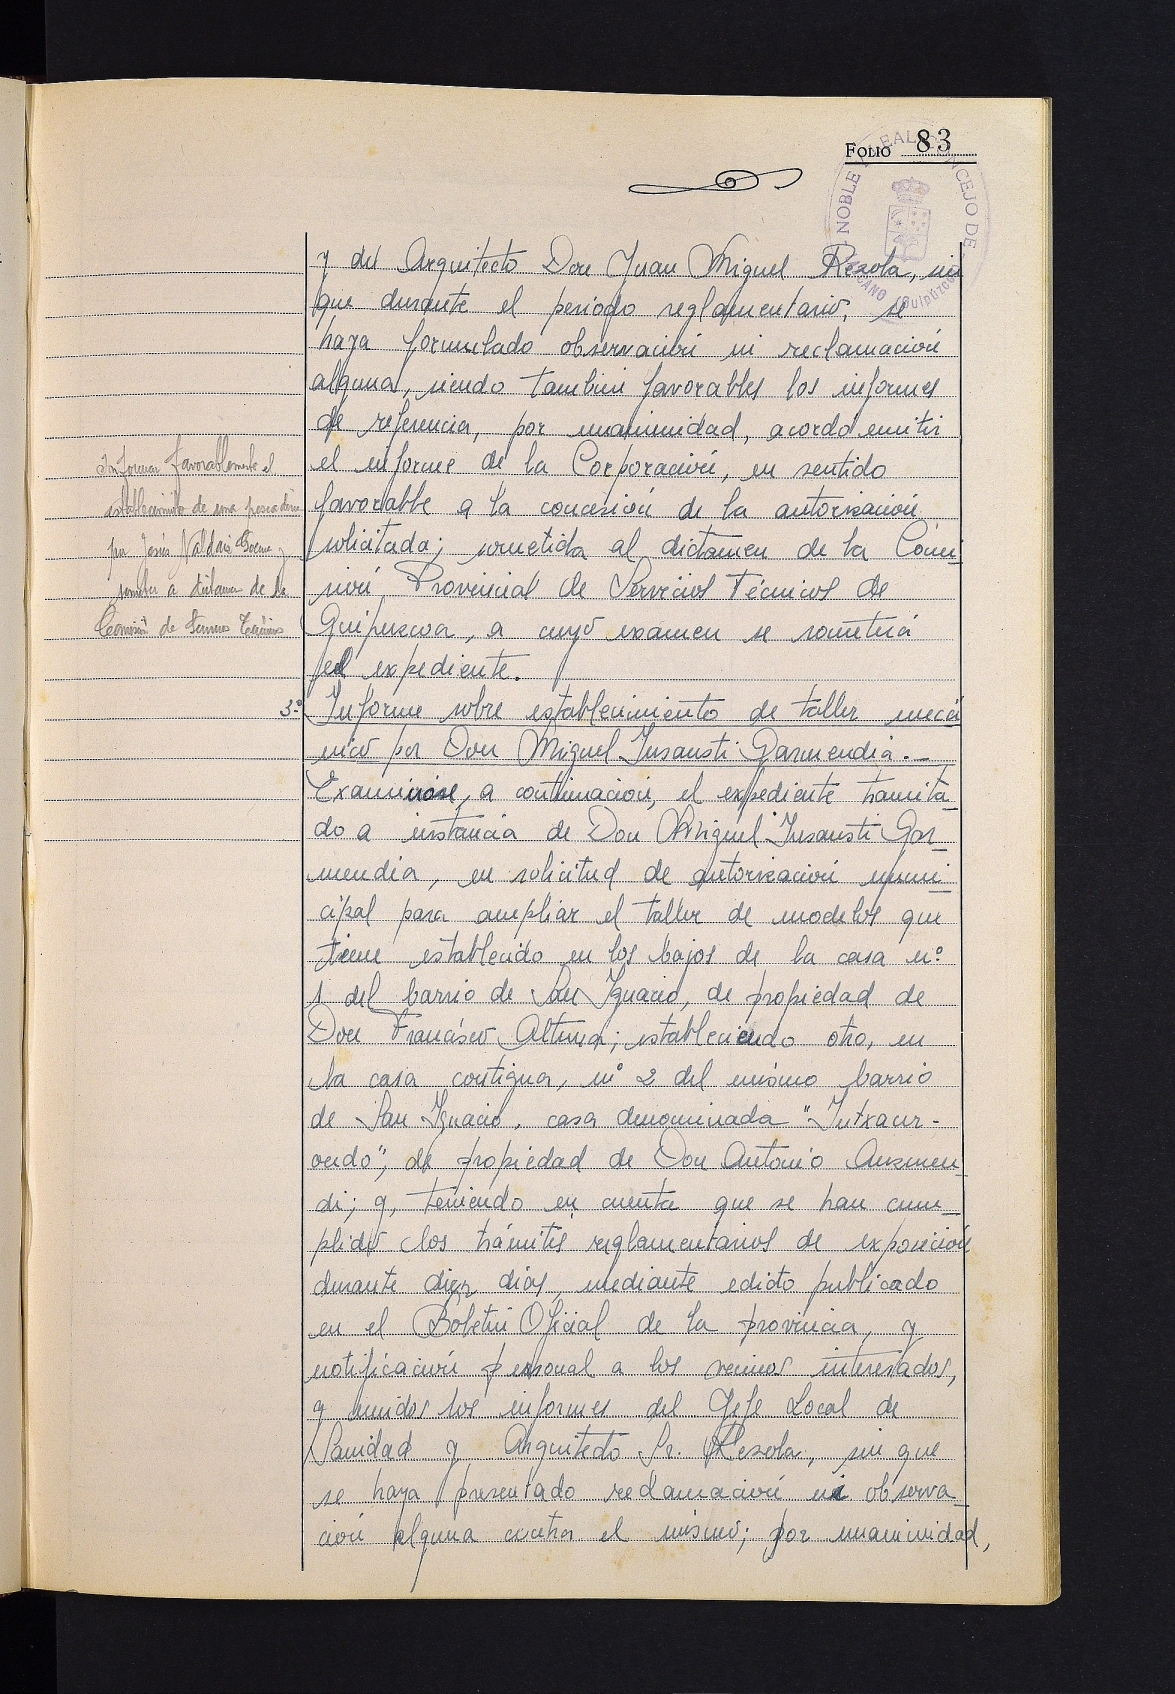 FOLIO 83
NOBLE Y REAL CONCEJO DE LAZCANO (Guipúzcoa)
y del Arquitecto Don Juan Miguel Rezola, sin
que durante el período reglamentario, se
haya formulado observación ni reclamación
alguna, siendo también favorables los informes
de referencia, por unanimidad, acordó emitir
el informe de la Corporación, en sentido
favorable a la concesión de la autorización
solicitada; sometida al dictamen de la Comi-
sión Provincial de Servicios Técnicos de
Guipúzcoa, a cuyo examen se someterá
el expediente.
Informar favorablemente el
establecimiento de una pescadería
por Jesús
someter a dictamen de la
Comisión de Servicios Técnicos
3º Informe sobre establecimiento de taller mecá
nico por Don Miguel Insausti Garmendia.—
Examinóse, a continuación, el expediente tramita-
do a instancia de Don Miguel Insausti Gar-
mendia, en solicitud de autorización muni-
cipal para ampliar el taller de modelos que
tiene establecido en los bajos de la casa nº
1 del barrio de San Ignacio, de propiedad de
Don Francisco Altuna; estableciendo otro, en
la casa contigua, nº 2 del mismo barrio
de San Ignacio, casa denominada "Intxaur-
ondo", de propiedad de Don Antonio Auzmen-
di; y, teniendo en cuenta que se han cum-
plido los trámites reglamentarios de exposición
durante diez días, mediante edicto publicado
en el Boletín Oficial de la provincia, y
notificación personal a los vecinos interesados,
y unidos los informes del Jefe Local de
Sanidad y Arquitecto Sr. Rezola, sin que
se haya presentado reclamación ni observa-
ción alguna contra el mismo; por unanimidad,